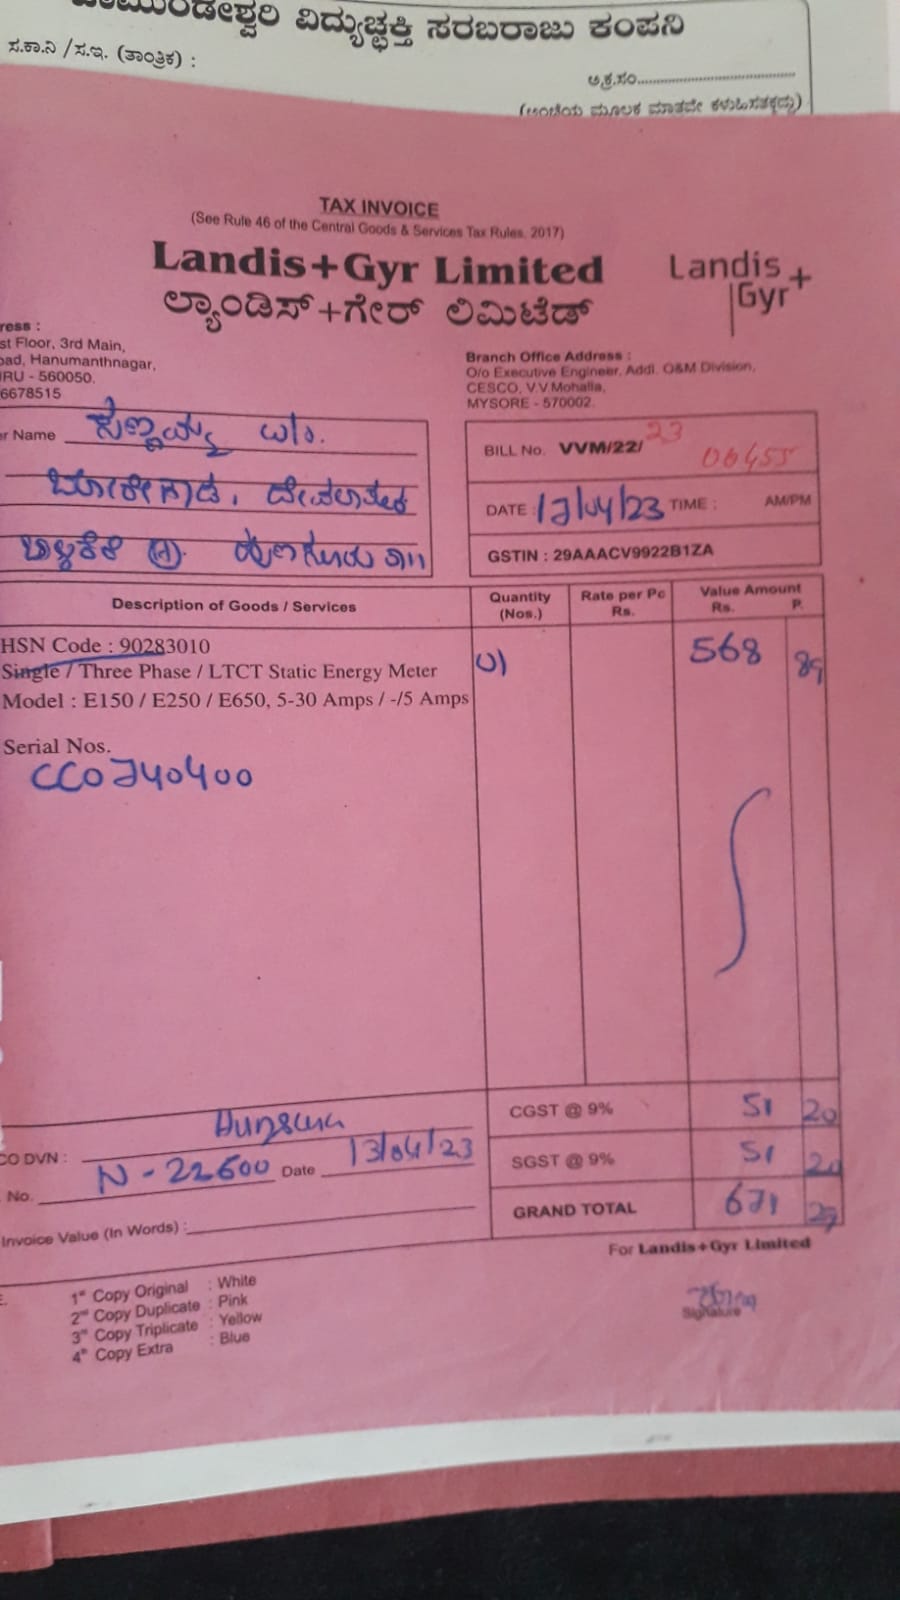 ವಿದ್ಯುಚ್ಛಕ್ತಿ ಸರಬರಾಜು ಕಂಪನಿ
ಸ.ಕಾ.ನಿ /ಸ.ಇ. (ತಾಂತ್ರಿಕ) :
ಅ.ಕ್ರ.ಸಂ..............................
(ಅಂಚೆಯ ಮೂಲಕ ಮಾತವೇ ಕಳುಹಿಸತಕ್ಕದ್ದು)
TAX INVOICE
(See Rule 46 of the Central Goods & Services Tax Rules. 2017)
Landis+Gyr Limited
Landis
Gyr+
ಲ್ಯಾಂಡಿಸ್+ಗೇರ್ ಲಿಮಿಟೆಡ್
ress :
st Floor, 3rd Main,
oad, Hanumanthnagar,
RU - 560050.
6678515
Branch Office Address :
O/o Executive Engineer, Addl. O&M Division,
CESCO, V.V.Mohalla,
MYSORE - 570002.
r Name
BILL No. VVM/22/23 00455
DATE : 17/04/23 TIME : AM/PM
GSTIN : 29AAACV9922B1ZA
Description of Goods / Services
Quantity (Nos.)
Rate per Pc Rs.
Value Amount Rs. P.
HSN Code : 90283010
Single / Three Phase / LTCT Static Energy Meter
568 89
Model : E150 / E250 / E650, 5-30 Amps / -/5 Amps
Serial Nos.
CC0740400
CGST @ 9% 51 20
CO DVN :
SGST @ 9% 51 20
No. N-22600 Date 13/04/23
GRAND TOTAL 671 29
Invoice Value (In Words) :
For Landis+Gyr Limited
1st Copy Original : White
2nd Copy Duplicate : Pink
3rd Copy Triplicate : Yellow
4th Copy Extra : Blue
Signature